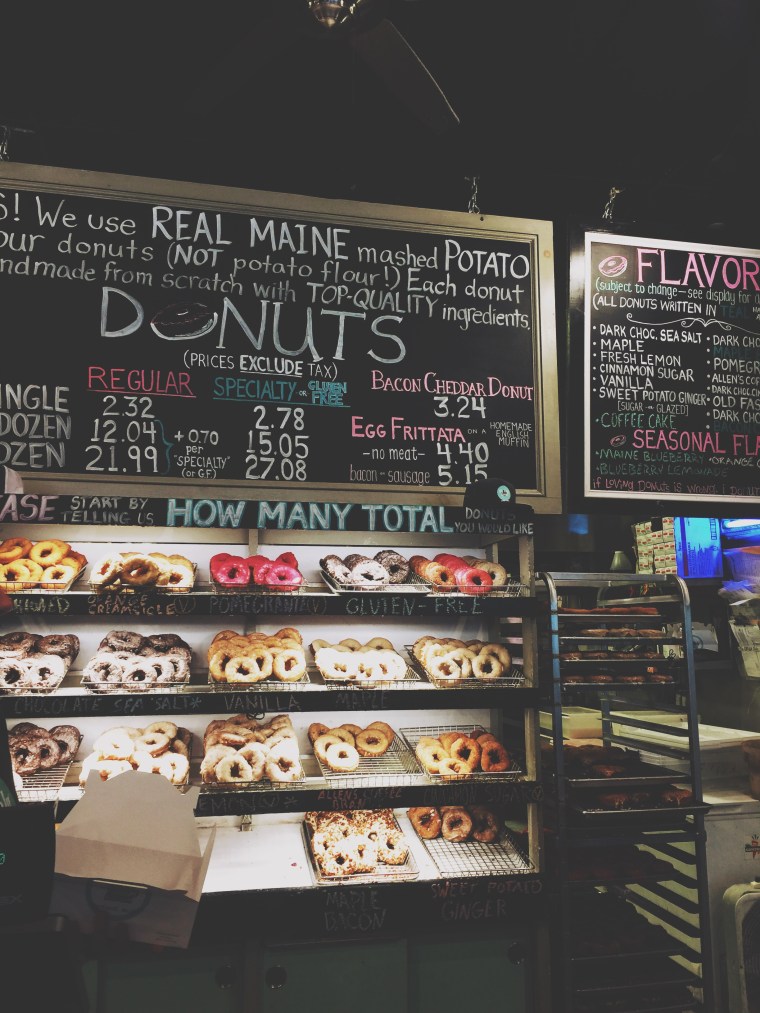 ! We use REAL MAINE mashed POTATO
our donuts (NOT potato flour!) Each donut
ndmade from scratch with TOP-QUALITY ingredients.
DONUTS
(PRICES EXCLUDE TAX)
REGULAR SPECIALTY OR GLUTEN FREE
INGLE 2.32 2.78
DOZEN 12.04 15.05
OZEN 21.99 27.08
+ 0.70
per
"SPECIALTY"
(or GF)
BACON CHEDDAR DONUT
3.24
EGG FRITTATA ON A HOMEMADE ENGLISH MUFFIN
-no meat- 4.40
bacon or sausage 5.15
FLAVOR
(subject to change - see display for
(ALL DONUTS WRITTEN IN TEAL
• DARK CHOC. SEA SALT
• MAPLE
• FRESH LEMON
• CINNAMON SUGAR
• VANILLA
• SWEET POTATO GINGER
[SUGAR or GLAZED]
• COFFEE CAKE
• DARK CHO
• POMEGR
• ALLEN'S COF
• DARK CHOC
• OLD FAS
• DARK CHO
SEASONAL FLA
• MAINE BLUEBERRY • ORANGE
• BLUEBERRY LEMON
IF LOVING DONUTS IS WRONG, I
ASE START BY TELLING US HOW MANY TOTAL DONUTS YOU WOULD LIKE
CREAMSICLE (V) POMEGRANATE (V) GLUTEN-FREE
CHOCOLATE SEA SALT* VANILLA MAPLE
MAPLE
BACON
SWEET POTATO
GINGER